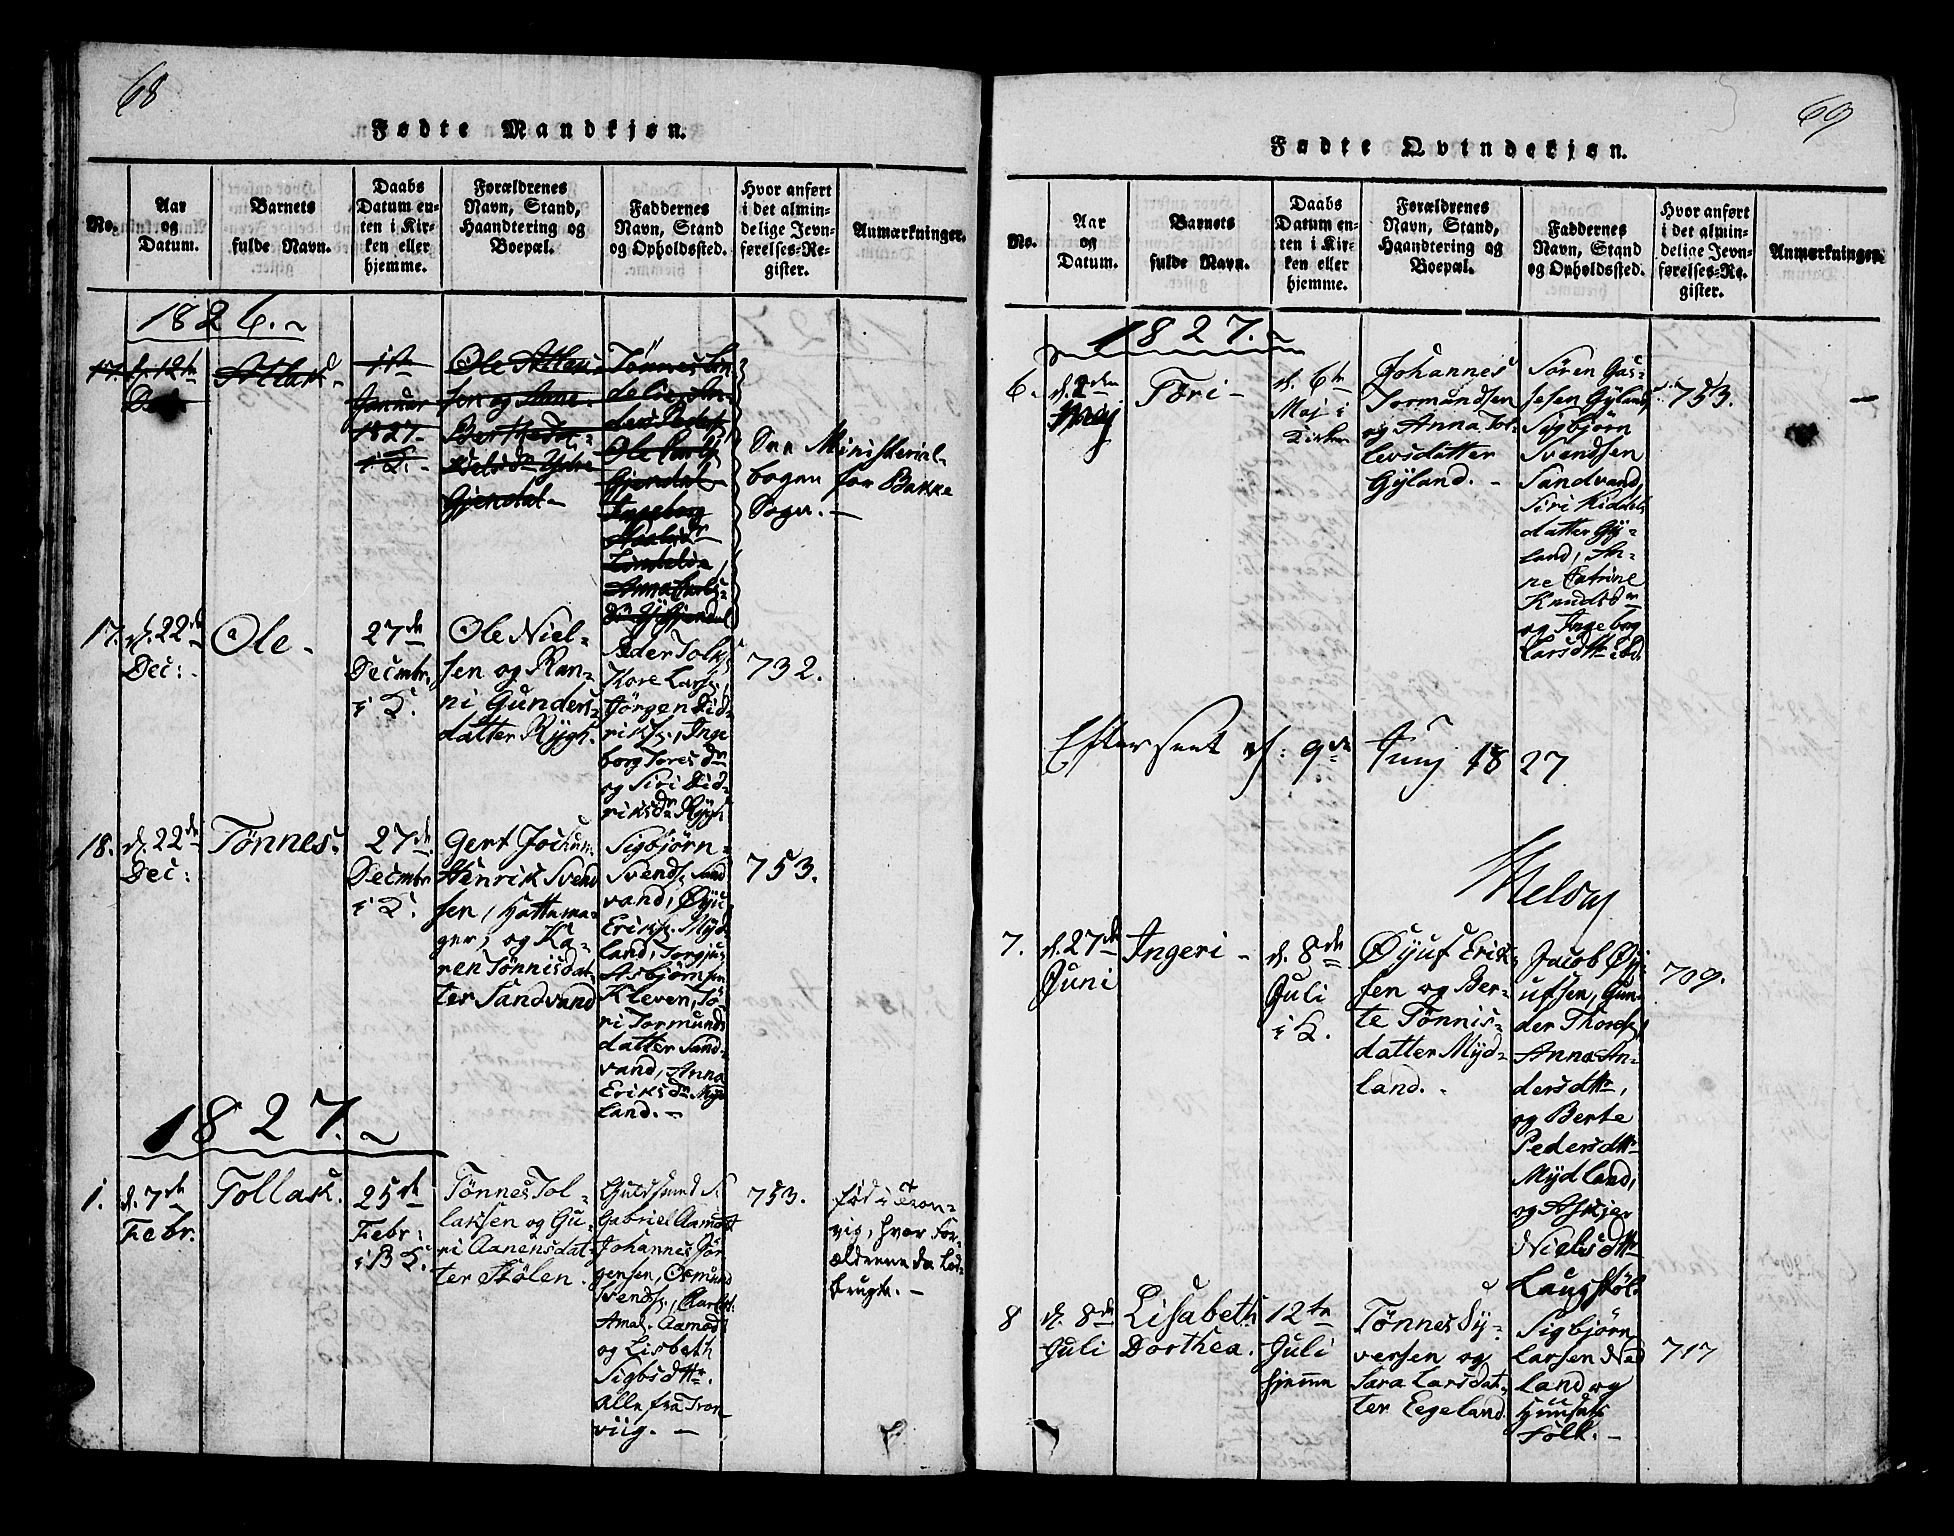 68
Fødte Mandkjøn.
No.
Aar
og
Datum.
Barnets
fulde Navn.
Daabs
Datum en-
ten i Kir-
ken eller
hjemme.
Forældrenes
Navn, Stand,
Haandtering og
Boepæl.
Faddernes
Navn, Stand
og Opholdssted.
Hvor anført
i det almin-
delige Jevn-
førelses-Re-
gister.
Anmærkninger.
1826.
17. d. 12te
Atlak-
1ste
Januar
1827-
i K.-
Ole Atlak-
sen og Anne
Berthe
Nielsdr Ydre
Gjendal-
Tønnes
Ole
Gjendal
Ingeborg
Gjendal
See Ministerial-
bogen for Bakke
Sogn. -
17. d. 22de
Dec:
Ole-
27de
Decmbr.
i K.
Ole Niel-
sen og Ran-
ni Gunders-
datter Rygh.
Peder
Tore Lars.,
Jørgen Did-
riks., Inge
borg Toresdr
og Siri Did-
riksdr Rygh
732.
18. d. 22de
Dec:
Tønnes-
27de
Decmbr
i K.
Gert Jochum
Henrik Svend
sen, Hattema-
ger, og Ka-
ren Tønnisdat-
ter Sandvand
Sigbjørn
Svends. Sand
vand, Øyu
Eriks. Myd-
land, Torgjus
Asbjørnsen
Kleven, To-
ri Tormunds
datter Sand-
vand, Anna
Eriksdr Myd
land. -
753.
1827.
1. d. 7de
Febr.
Tollak.
25de
Febr:
i B K.
Tønnes Tol-
laksen og Gu-
ri Aanensdat-
ter Stølen.
Gabriel Aamodt
Johannes Jør
gensen, Osmund
Svends.,
Amal. Aamodt
og Lisbeth
Sigbsdtr.
Alle fra Tron-
viig. -
753.
fød i Tron-
vig, hvor For-
ældrene da Led-
brugte. -
69
Fødte Qvindekjøn.
No.
Aar
og
Datum.
Barnets
fulde Navn.
Daabs
Datum en-
ten i Kir-
ken eller
hjemme.
Forældrenes
Navn, Stand,
Haandtering og
Boepæl.
Faddernes
Navn, Stand
og Opholdssted.
Hvor anført
i det almin-
delige Jevn-
førelses-Re-
gister.
Anmærkninger.
1827.
6. d. 2den
Maj
Tori-
d. 6te
Maj i
Kirken
Johannes
Tormundsen
og Anna Tor-
levsdatter
Gyland. -
Søren Gas-
sesen Gyland,
Sigbjørn
Svendsen
Sandvand,
Siri Kiddels
datter Gy-
land, An-
ne Catrine
Knudsdr
og Ingeborg
Larsdtr ibd.
753.
-
Efterseet d: 9de Junj 1827
7. d. 27de
Juni
Ingeri -
d. 8de
Juli
i K.
Øyuf Erik-
sen og Ber-
te Tønnis-
datter Myd-
land. -
Jacob Øy-
ufsen, Gun-
der Thores.,
Anna An-
dersdtr,
og Berte
Pedersdtr
Mydland,
og Askjer
Nielsdtr
Laugstøl
709.
8 d. 8de
Juli
Lisabeth
Dorthea.
12te
Juli
hjemme
Tønnes Sy-
versen og
Sara Larsdat-
ter Eegeland
Sigbjørn
Larsen Ned
land og
Huusets
Folk. -
717